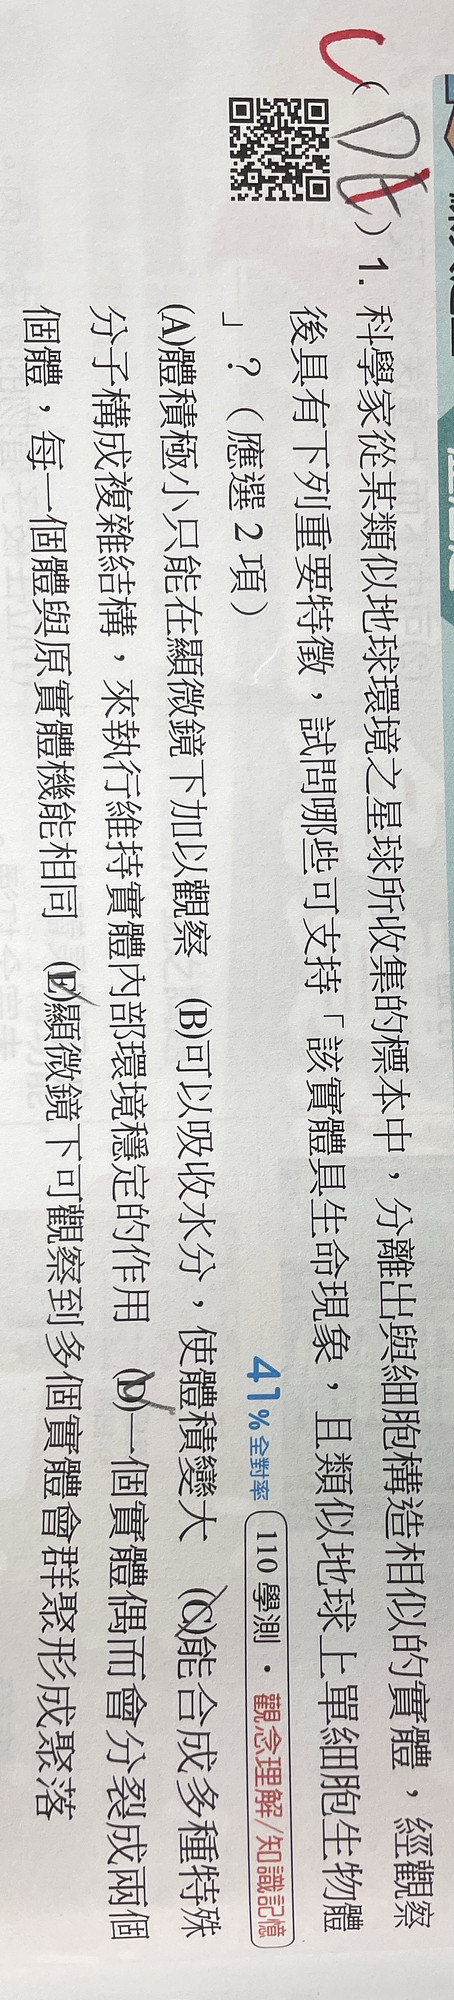 C(DE)1. 科學家從某類似地球環境之星球所收集的標本中，分離出與細胞構造相似的實體，經觀察
後具有下列重要特徵，試問哪些可支持「該實體具生命現象，且類似地球上單細胞生物體
」？（應選2項）
41%全對率 110學測·觀念理解/知識記憶
(A)體積極小只能在顯微鏡下加以觀察 (B)可以吸收水分，使體積變大 (C)能合成多種特殊
分子構成複雜結構，來執行維持實體內部環境穩定的作用 (D)一個實體偶而會分裂成兩個
個體，每一個體與原實體機能相同 (E)顯微鏡下可觀察到多個實體會群聚形成聚落